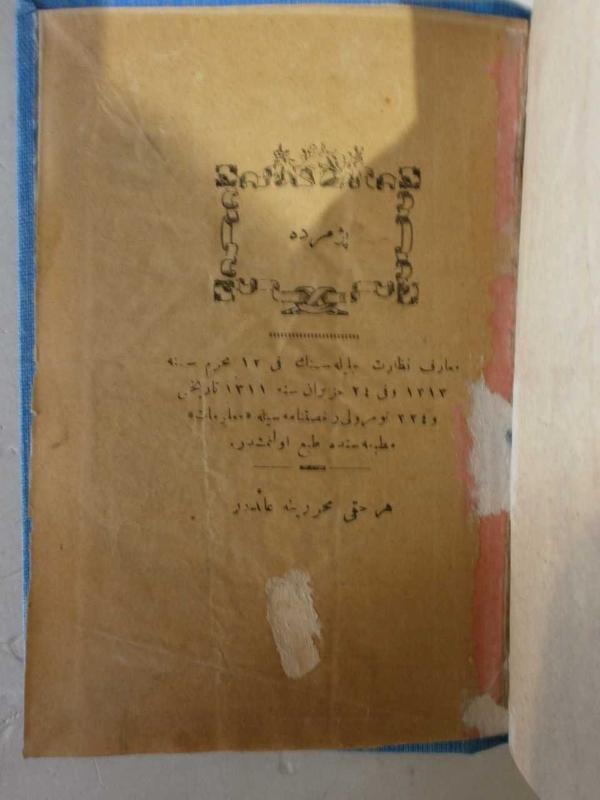 پژمرده
معارف نظارت جلیله‌سینك فی ١٢ محرم سنه
١٣١٣ وفی ٢٤ حزیران سنه ١٣١١ تاریخلی
و٢٢٤ نومرولی رخصتنامه‌سیله «معلومات»
مطبعه‌سنده طبع اولنمشدر.
هر حقی محررینه عائددر